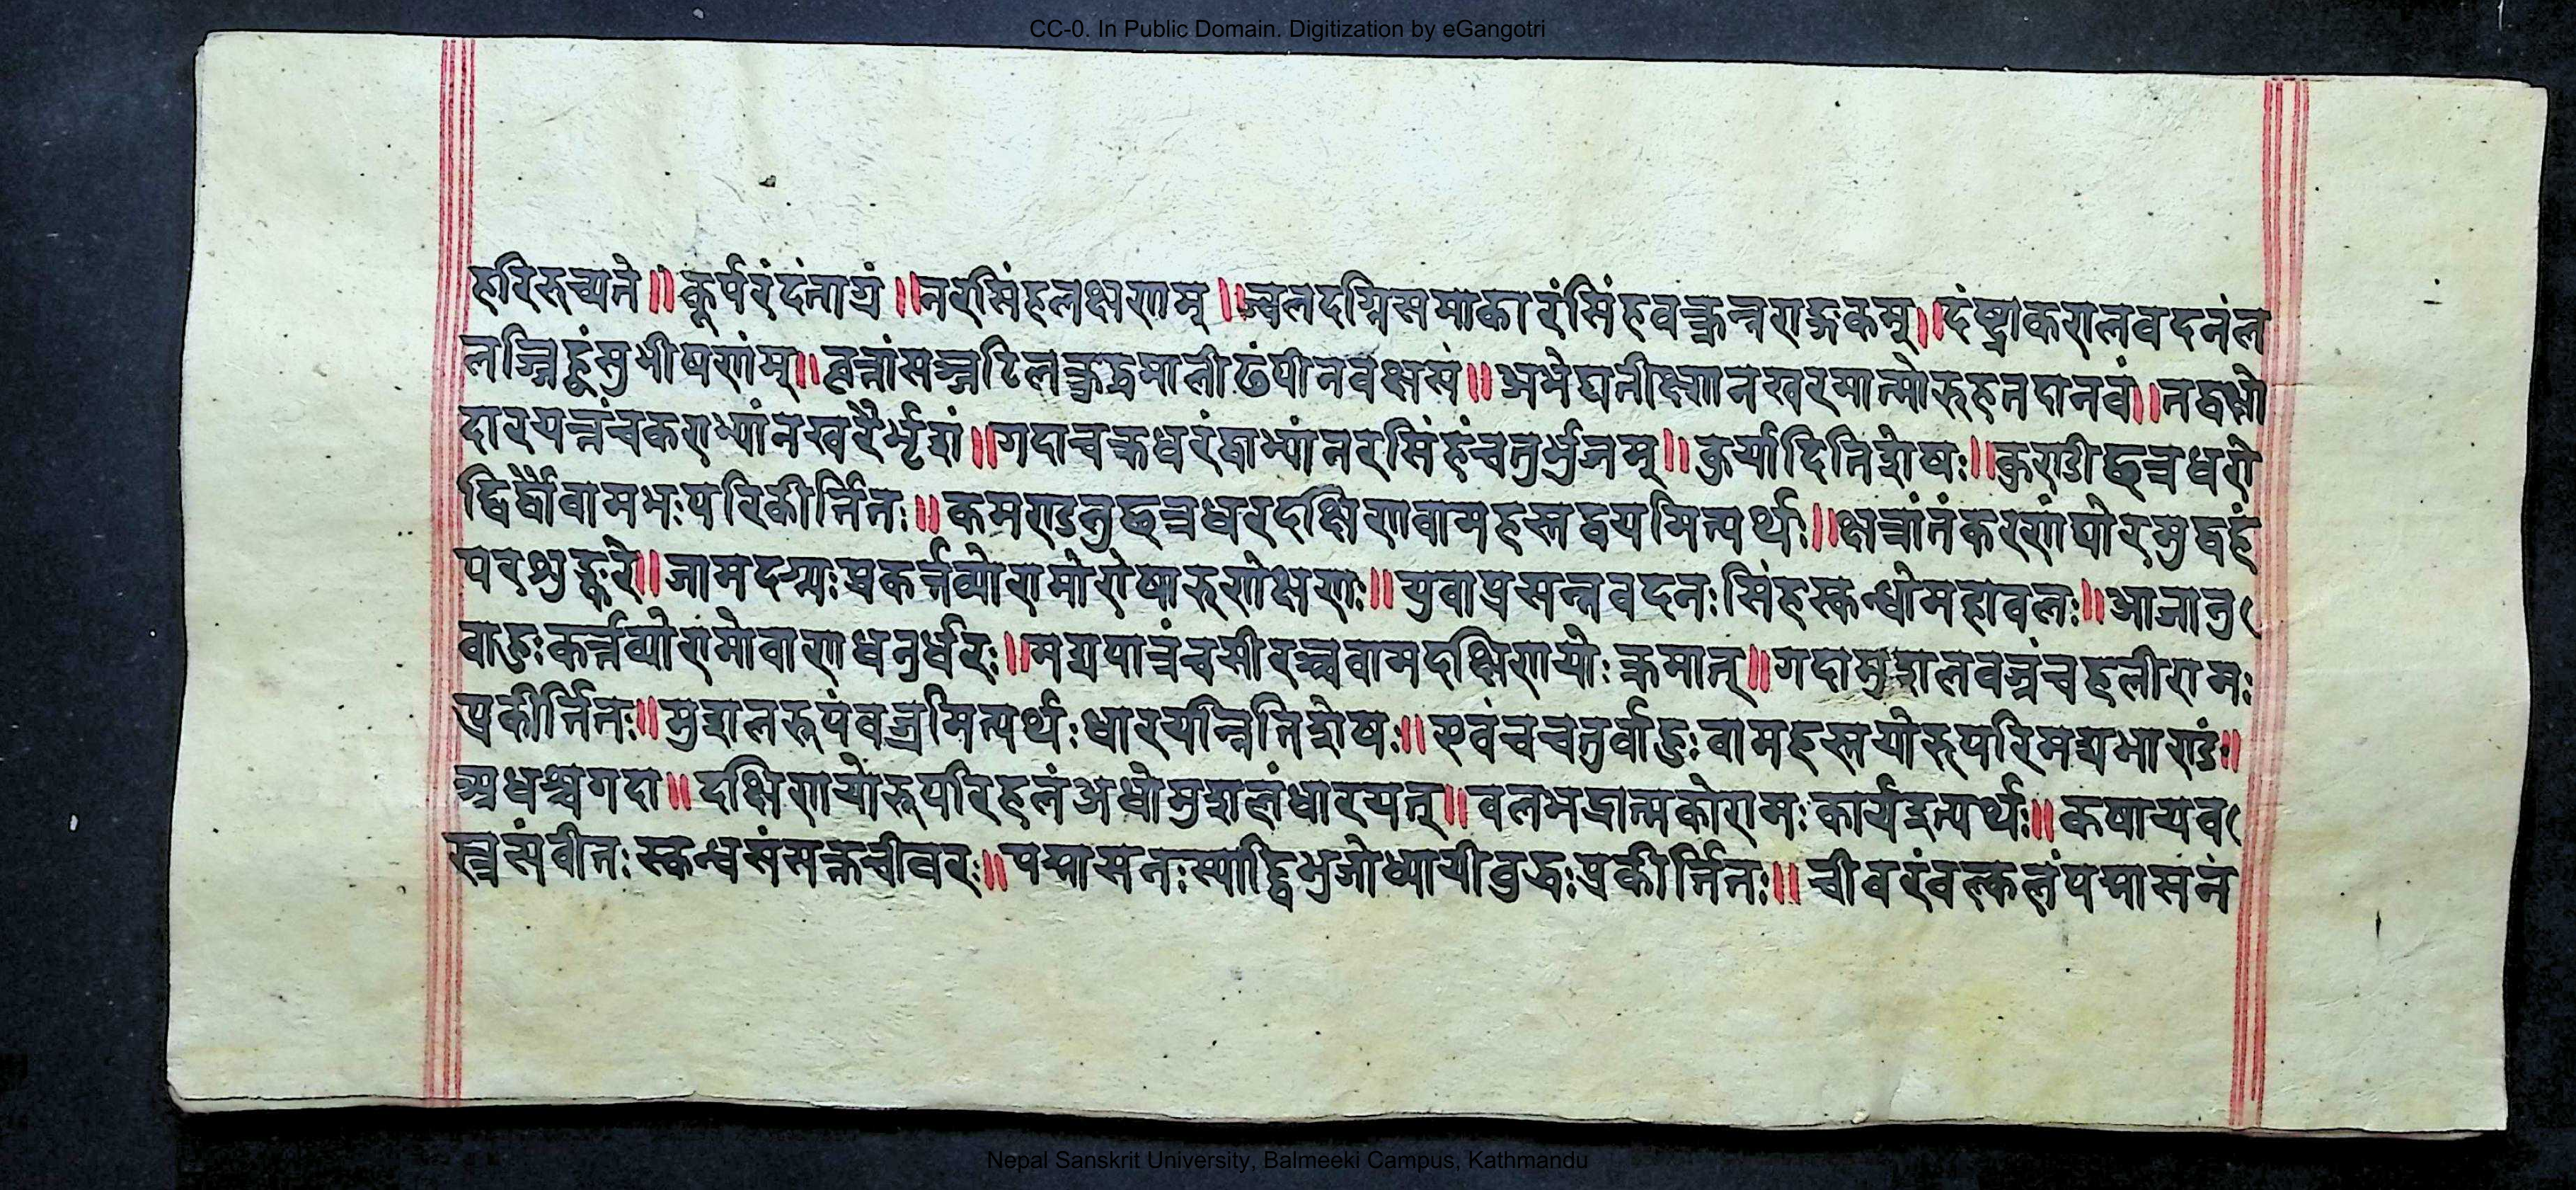 CC-0. In Public Domain. Digitization by eGangotri
हरिरुच्यते॥ कूर्परंदंताग्रं॥ नरसिंहलक्षणम्॥ ज्वलदग्निसमाकारंसिंहवक्त्रन्नराङ्गकम्॥ दंष्ट्राकरालवदनंल
लज्जिह्वंसुभीषणंम्॥ वृत्तांसञ्जटिलङ्क्रुद्धमालीढंपीनवक्षसं॥ अभेद्यतीक्ष्णनखरमात्मोरुहतदानवं॥ तद्वक्षो
दारयन्तंचकराभ्यांनखरैर्भृशं॥ गदाचक्रधरंद्वाभ्यांनरसिंहंचतुर्भुजम्॥ कुर्यादितिशेषः॥ कुण्डीछत्रधरो
द्विर्द्वौवामभःपरिकीर्त्तितः॥ कमण्डलुछत्रधरदक्षिणवामहस्तद्वयमित्यर्थः॥ क्षत्रांतंकरणंघोरमुद्वहं
परशुङ्करे॥ जामदग्न्यःप्रकर्त्तव्योरामोरोषारुणेक्षणः॥ युवाप्रसन्नवदनःसिंहस्कन्धोमहावलः॥ आजानु
वाहुःकर्त्तव्योरामोवाणधनुर्धरः॥ मद्यपात्रंचसीरञ्चवामदक्षिणयोःक्रमात्॥ गदामुशलवज्रंचहलीरामः
प्रकीर्त्तितः॥ मुशलरूपंवज्रमित्यर्थःधारयन्नितिशेषः॥ एवंचचतुर्वाहुःवामहस्तयोरूपरिमद्यभाण्डं॥
अधश्चगदा॥ दक्षिणयोरूपरिहलंअधोमुशलंधारयत्॥ वलभद्रात्मकोरामःकार्यइत्यर्थः॥ कषायव
स्त्रसंवीतःस्कन्धसंसक्तचीवरः॥ पद्मासनःस्याद्द्विभुजोध्यायीवुद्धःप्रकीर्त्तितः॥ चीवरंवल्कलंपद्मासनं
Nepal Sanskrit University, Balmeeki Campus, Kathmandu